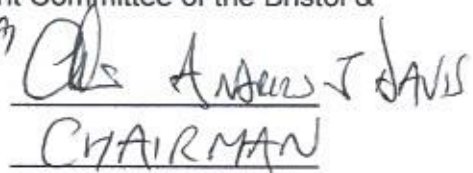 nt Committee of the Bristol &
Andrew J Davis
CHAIRMAN